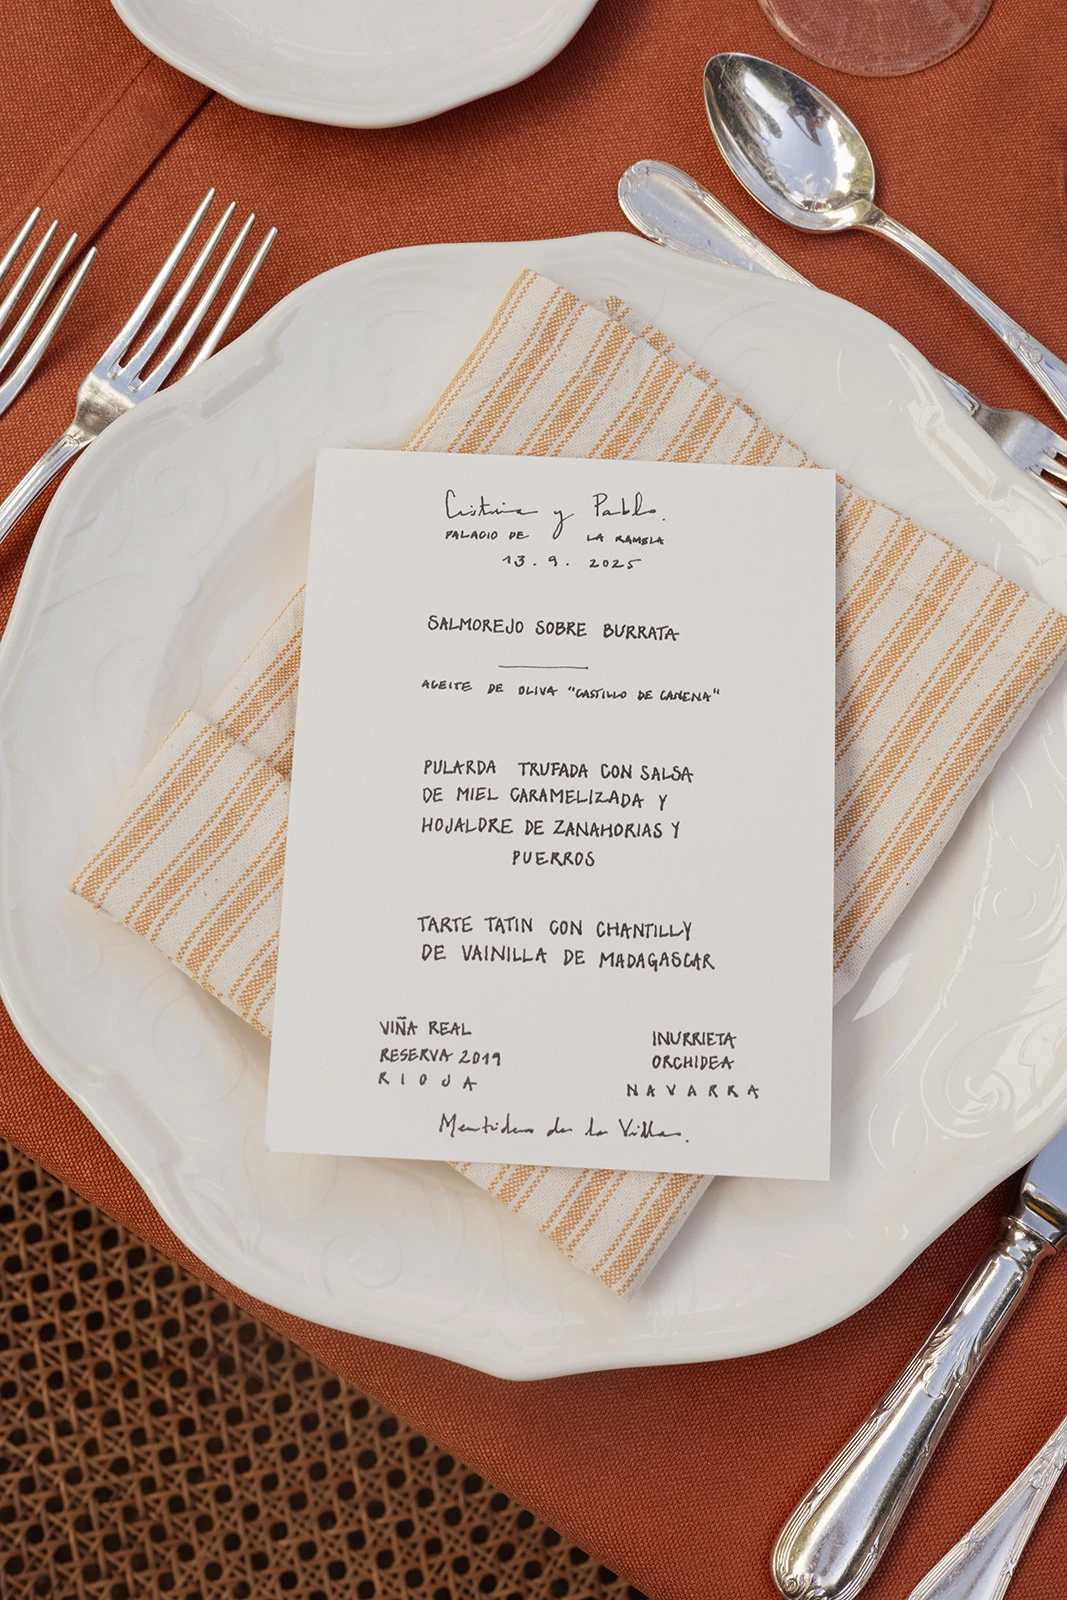 Cristina y Pablo.
PALACIO DE LA RAMBLA
13.9.2025
SALMOREJO SOBRE BURRATA
ACEITE DE OLIVA "CASTILLO DE CANENA"
PULARDA TRUFADA CON SALSA
DE MIEL CARAMELIZADA Y
HOJALDRE DE ZANAHORIAS Y
PUERROS
TARTE TATIN CON CHANTILLY
DE VAINILLA DE MADAGASCAR
VIÑA REAL
RESERVA 2019
RIOJA
INURRIETA
ORCHIDEA
NAVARRA
Mentidero de la Villa.